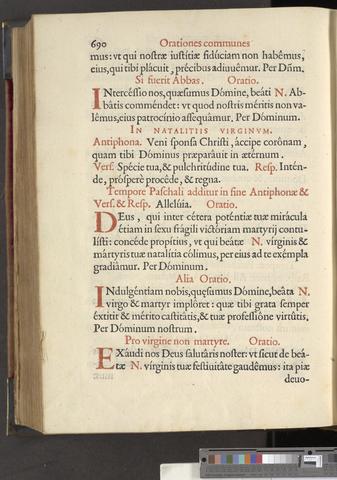 690 Orationes communes
mus: vt qui nostræ iustitiæ fidúciam non habêmus,
eius, qui tibi plácuit, précibus adiuuêmur. Per Dñm.
Si fuerit Abbas. Oratio.
INtercéssio nos, quæsumus Dómine, beáti N. Ab-
bâtis comméndet: vt quod nostris méritis non va-
lêmus, eius patrocínio assequâmur. Per Dóminum.
IN NATALITIIS VIRGINVM.
Antiphona. Veni sponsa Christi, áccipe corônam,
quam tibi Dóminus præparâuit in ætérnum.
Vers. Spécie tua, & pulchritúdine tua. Resp. Intén-
de, próspere procéde, & regna.
Tempore Paschali additur in fine Antiphonæ &
Vers. & Resp. Allelúia. Oratio.
DEus, qui inter cétera poténtiæ tuæ mirácula
étiam in sexu frágili victóriam martyrij contu-
lísti: concéde propítius, vt qui beátæ N. vírginis &
mártyris tuæ natalítia cólimus, per eius ad te exémpla
gradiâmur. Per Dóminum.
Alia Oratio.
INdulgéntiam nobis, quæsumus Dómine, beáta N.
virgo & martyr implôret: quæ tibi grata semper
éxtitit & mérito castitâtis, & tuæ professiône virtûtis.
Per Dóminum nostrum.
Pro virgine non martyre. Oratio.
EXáudi nos Deus salutáris noster: vt sicut de beá-
tæ N. vírginis tuæ festiuitâte gaudêmus: ita piæ
deuo-